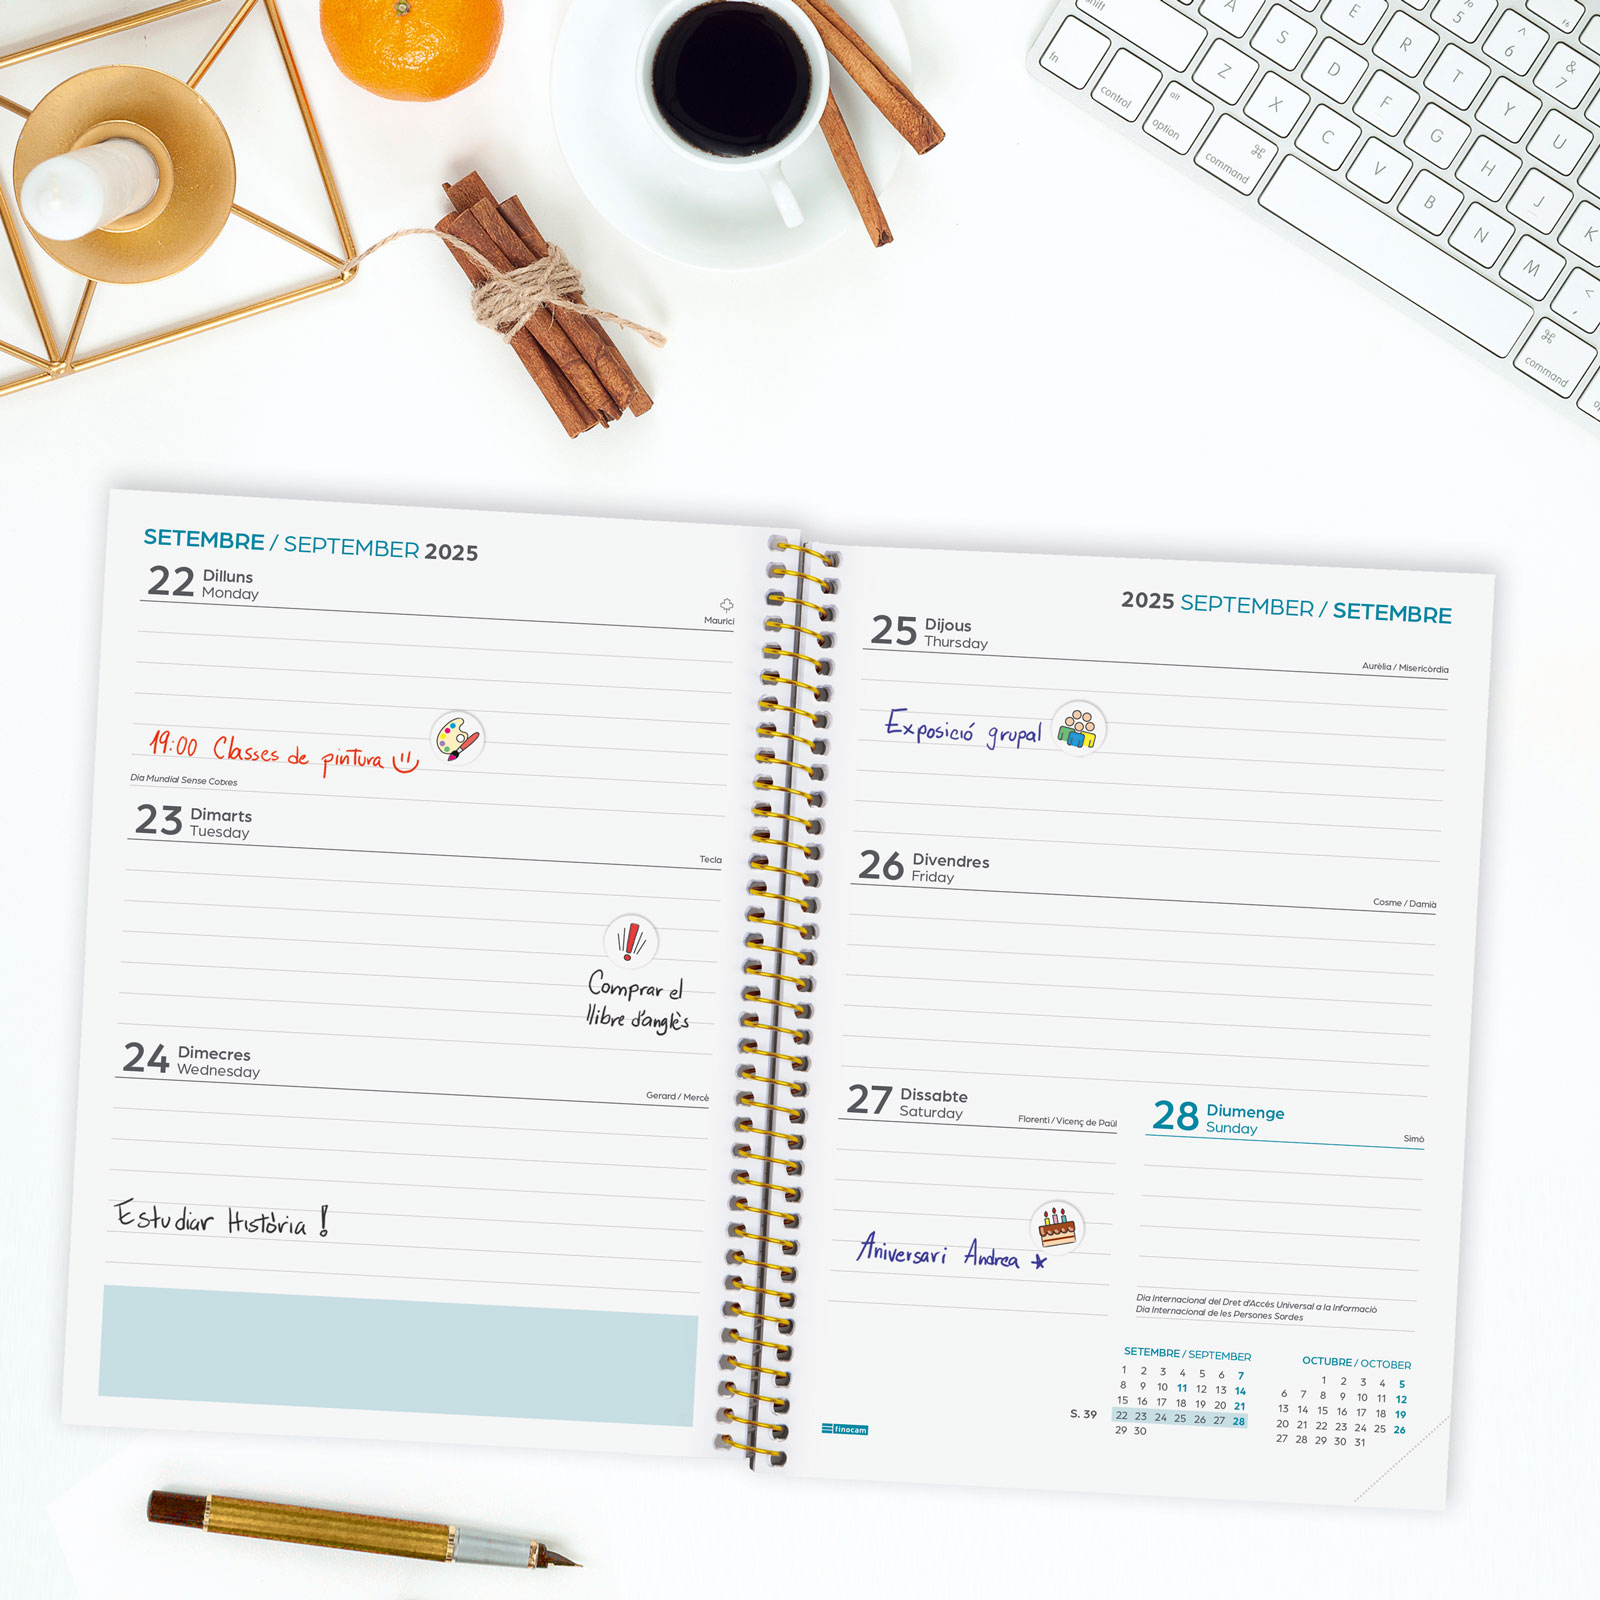 shift
fn
control
alt
option
⌘
command
A
S
D
F
G
H
J
K
E
R
T
Y
U
Z
X
C
V
B
N
M
%
5
^
6
&
7
<
,
⌘
command
SETEMBRE / SEPTEMBER 2025
22 Dilluns
Monday
Maurici
19:00 Classes de pintura
Dia Mundial Sense Cotxes
23 Dimarts
Tuesday
Tecla
Comprar el
llibre d'anglès
24 Dimecres
Wednesday
Gerard / Mercè
Estudiar Història !
2025 SEPTEMBER / SETEMBRE
25 Dijous
Thursday
Aurèlia / Misericòrdia
Exposició grupal
26 Divendres
Friday
Cosme / Damià
27 Dissabte
Saturday
Florentí / Vicenç de Paül
Aniversari Andrea ★
28 Diumenge
Sunday
Simó
Dia Internacional del Dret d'Accés Universal a la Informació
Dia Internacional de les Persones Sordes
SETEMBRE / SEPTEMBER
1 2 3 4 5 6 7
8 9 10 11 12 13 14
15 16 17 18 19 20 21
S. 39 22 23 24 25 26 27 28
29 30
OCTUBRE / OCTOBER
1 2 3 4 5
6 7 8 9 10 11 12
13 14 15 16 17 18 19
20 21 22 23 24 25 26
27 28 29 30 31
finocam